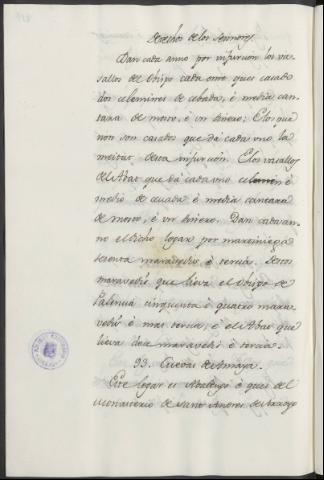 Derechos de los Sennores
Dan cada anno por infurcion los va-
sallos del Obispo cada ome ques casado
dos celemines de cebada, é media can-
tara de mosto, é vn dinero: E los que
non son casados que dá cada vno la
meitat desta infurcion. E los vasallos
del Abat que dá cada vno celemin é
medio de cevada é media cantara
de mosto, é vn dinero. Dan cada an-
no el dicho logar por marciniega
sesenta maravedis é tercia. Destos
maravedis que lieva el Obispo de
Palencia cinquenta é quatro mara-
vedis é mas tercia, é el Abat que
lieva doce maravedis é tercia
93. Cuevas de Amaya.
Este logar es Abadengo é ques del
Monasterio de Santo Andres de Arroyo